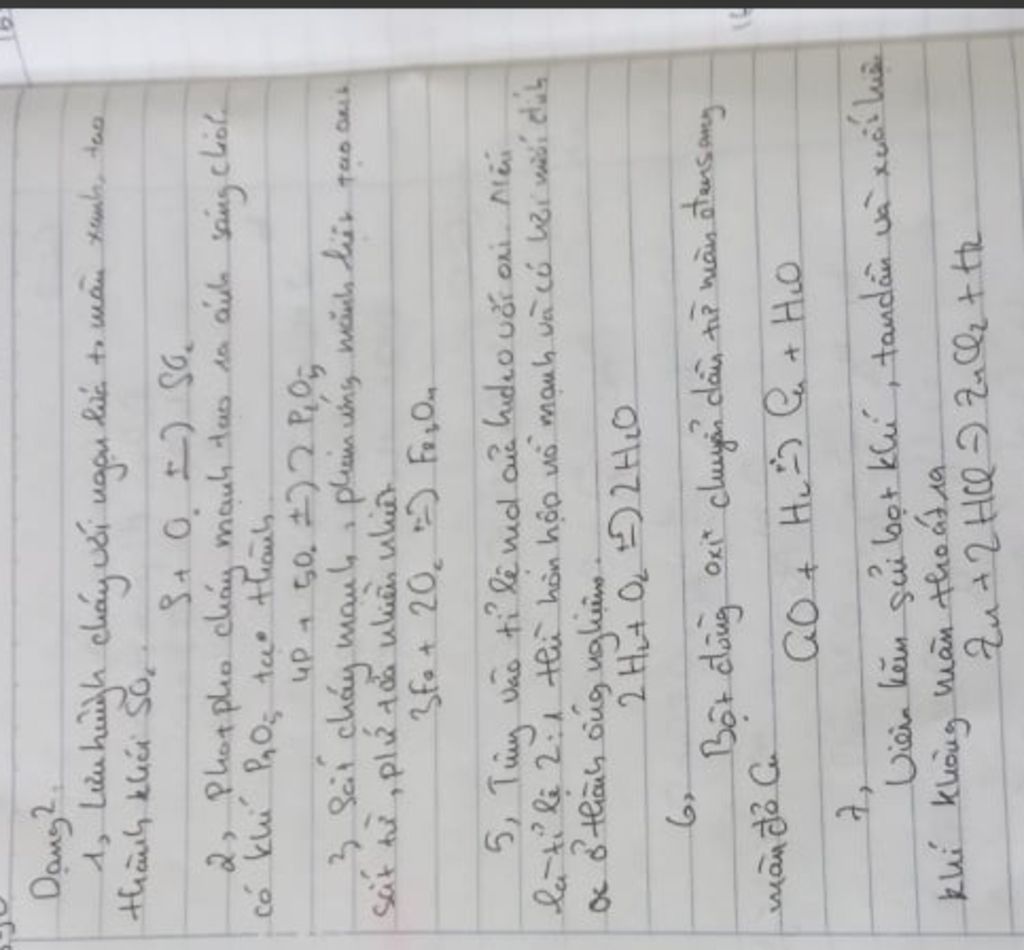 Dạng 2.
1, Lưu huỳnh cháy với ngọn lửa to màu xanh, tạo
thành khói SO₂.
S + O₂ → SO₂
2, Photpho cháy mạnh tạo ra ánh sáng chói.
có khí P₂O₅ tạo thành
4P + 5O₂ → 2P₂O₅
3, Sắt cháy mạnh, phản ứng mãnh liệt tạo oxit
sắt từ, toả nhiều nhiệt
3Fe + 2O₂ → Fe₃O₄
5, Tùy vào tỉ lệ mol của hidro với oxi. Nếu
là tỉ lệ 2:1 thì hỗn hợp nổ mạnh và có hơi nước
ở thành ống nghiệm.
2H₂ + O₂ → 2H₂O
6,
Bột đồng oxit chuyển dần từ màu đen sang
màu đỏ Cu
CuO + H₂ → Cu + H₂O
7,
Viên kẽm sủi bọt khí, tan dần và xuất hiện
khí không màu thoát ra
Zn + 2HCl → ZnCl₂ + H₂